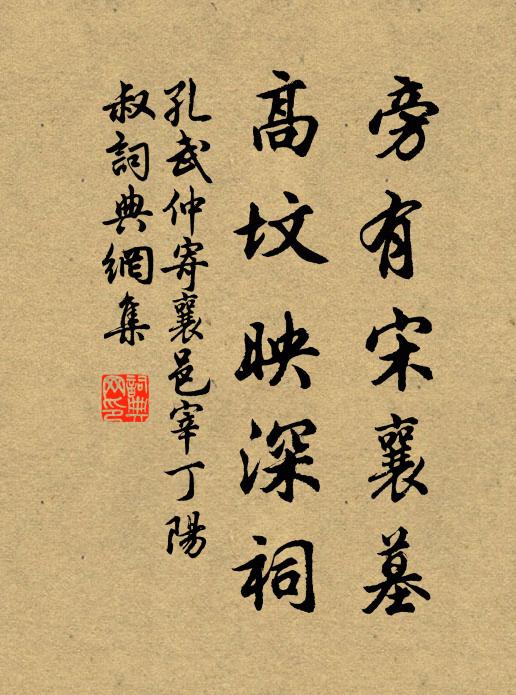 旁有宋襄墓
高坟映深祠
孔武仲寄襄邑宰丁陽
叔詞典網集
詞典网印